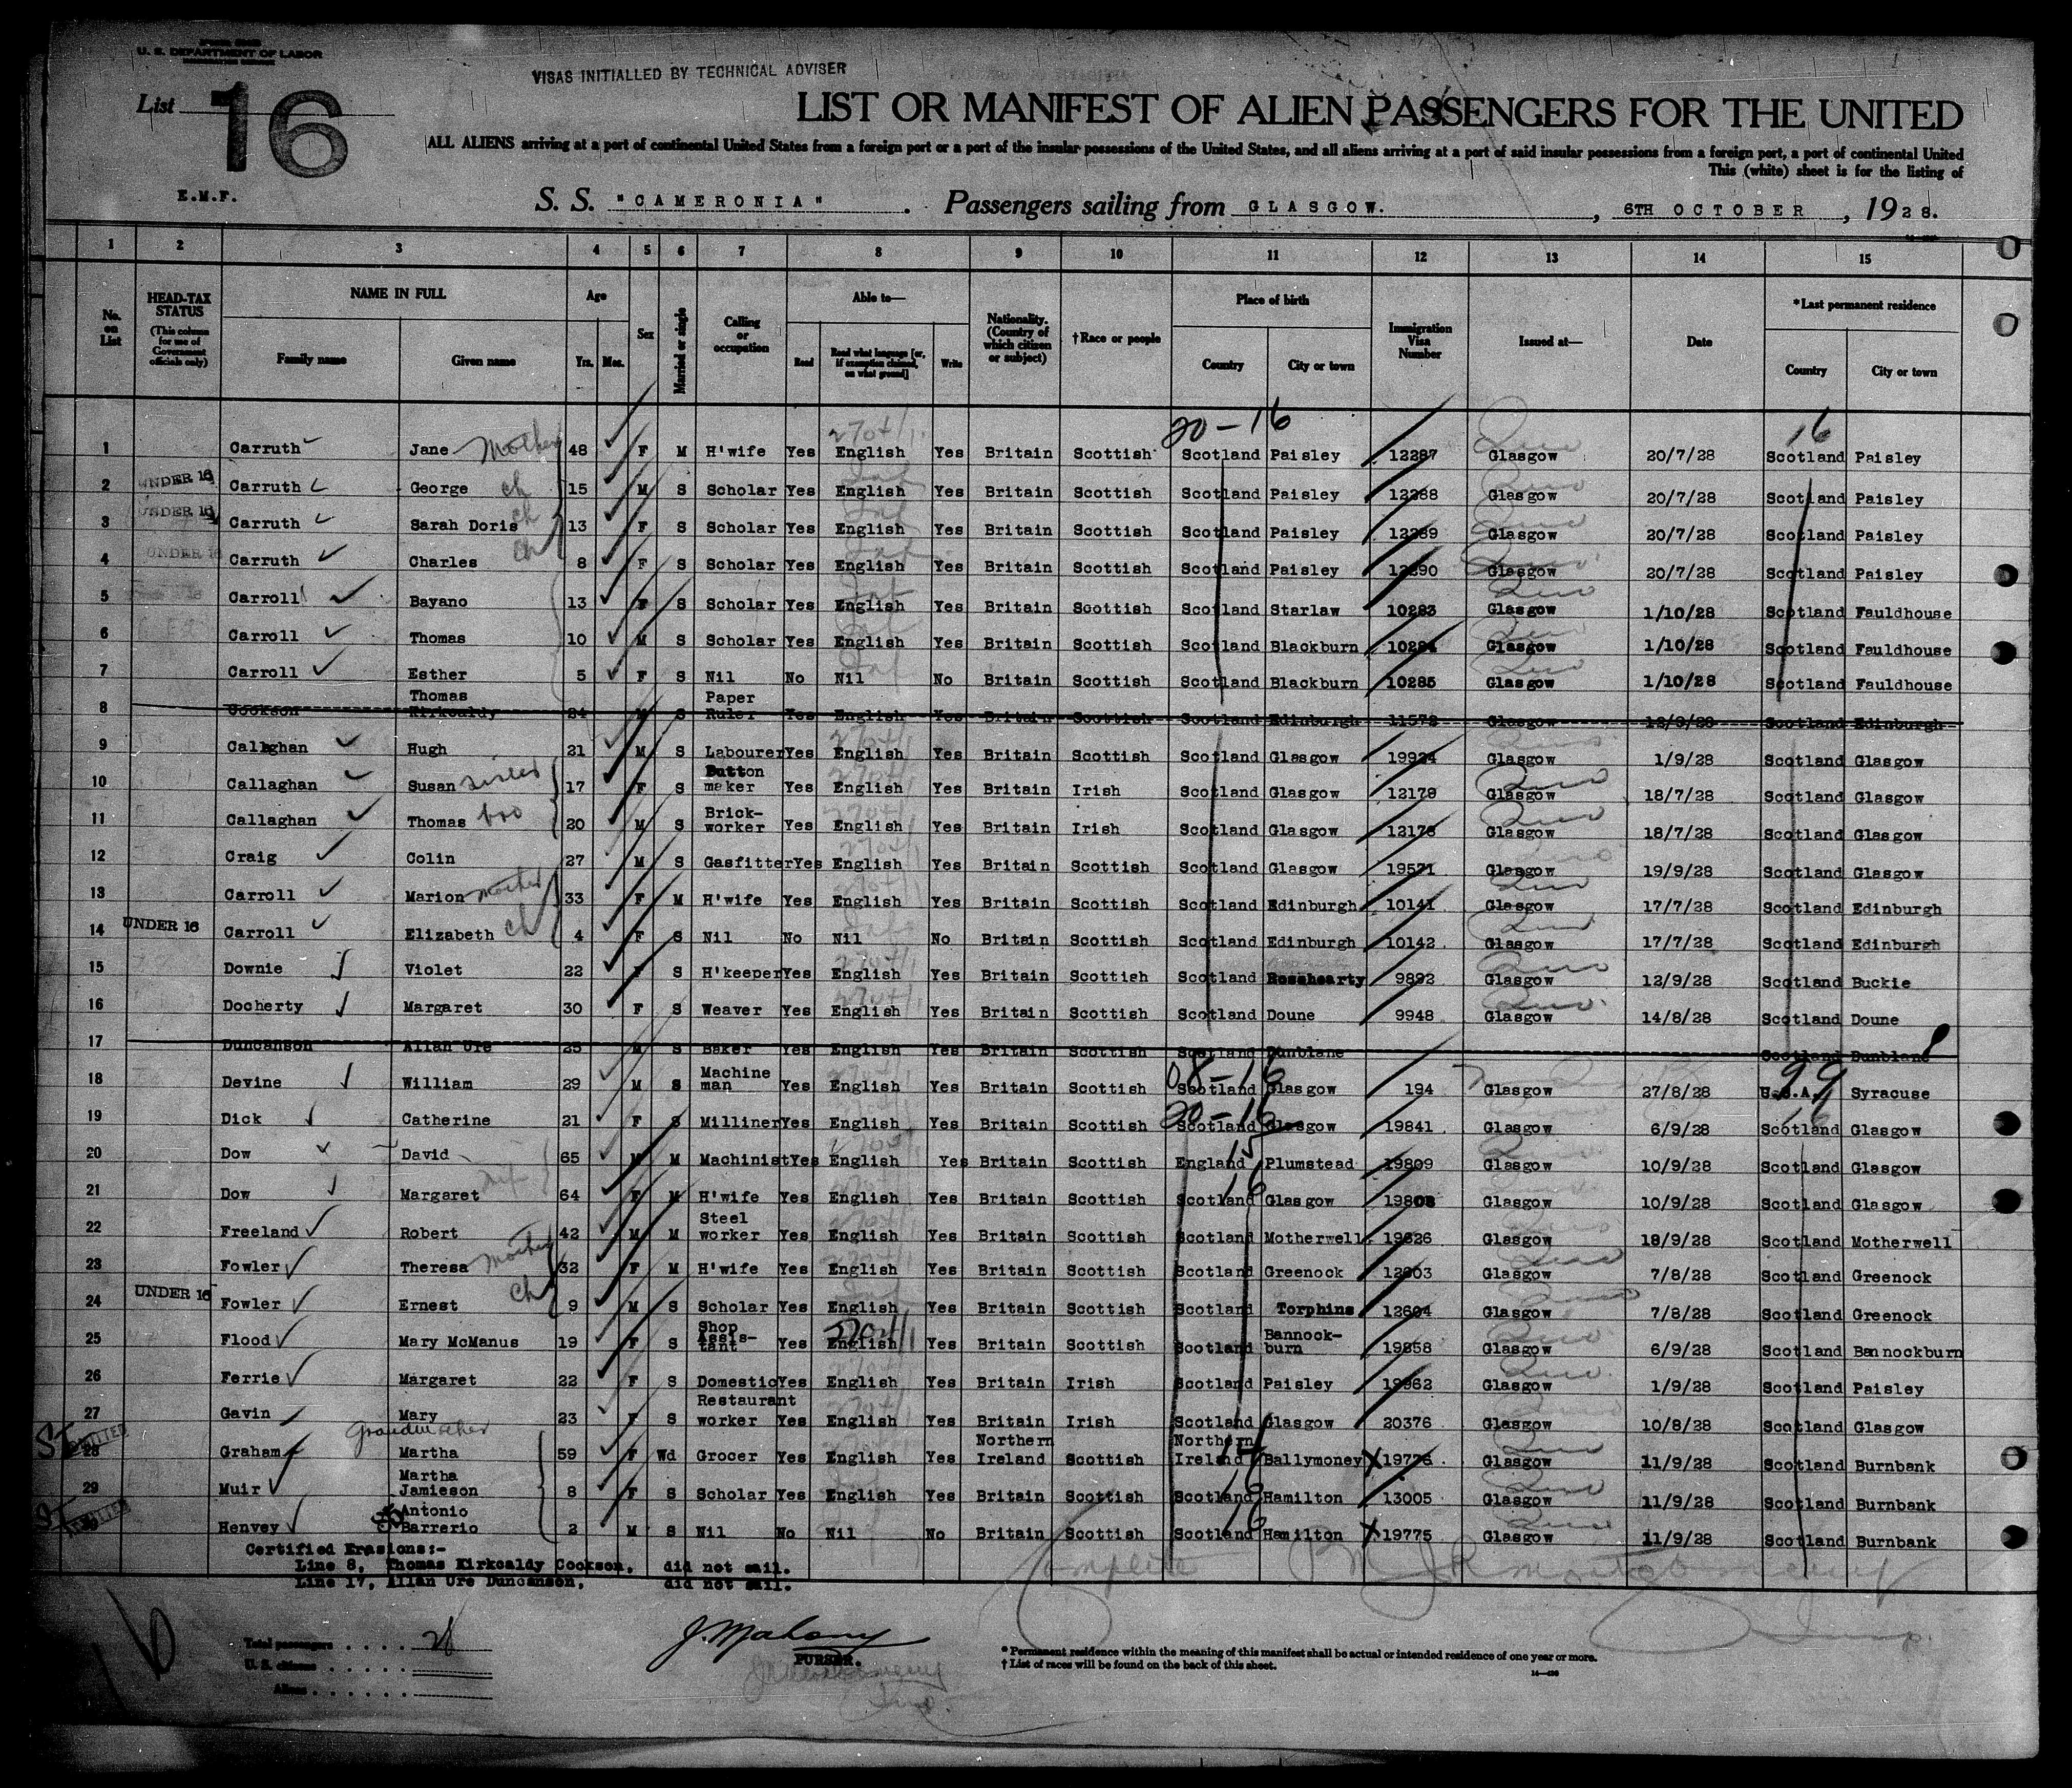 U. S. DEPARTMENT OF LABOR
VISAS INITIALLED BY TECHNICAL ADVISER
List 16
LIST OR MANIFEST OF ALIEN PASSENGERS FOR THE UNITED
ALL ALIENS arriving at a port of continental United States from a foreign port or a port of the insular possessions of the United States, and all aliens arriving at a port of said insular possessions from a foreign port, a port of continental United
This (white) sheet is for the listing of
E.M.F.
S. S. "CAMERONIA" . Passengers sailing from GLASGOW. , 6TH OCTOBER , 1928.
1 2 3 4 5 6 7 8 9 10 11 12 13 14 15
No. on List
HEAD-TAX STATUS (This column for use of Government officials only)
NAME IN FULL Family name Given name
Age Yrs. Mos.
Sex
Married or single
Calling or occupation
Able to— Read Read what language [or, if exemption claimed, on what ground] Write
Nationality. (Country of which citizen or subject)
†Race or people
Place of birth Country City or town
Immigration Visa Number
Issued at—
Date
*Last permanent residence Country City or town
20-16 16
1 Carruth Jane Mother 48 F M H'wife Yes English Yes Britain Scottish Scotland Paisley 12287 Glasgow 20/7/28 Scotland Paisley
2 UNDER 16 Carruth George ch 15 M S Scholar Yes English Yes Britain Scottish Scotland Paisley 12288 Glasgow 20/7/28 Scotland Paisley
3 UNDER 16 Carruth Sarah Doris ch 13 F S Scholar Yes English Yes Britain Scottish Scotland Paisley 12289 Glasgow 20/7/28 Scotland Paisley
4 UNDER 16 Carruth Charles ch 8 F S Scholar Yes English Yes Britain Scottish Scotland Paisley 12290 Glasgow 20/7/28 Scotland Paisley
5 Carroll Bayano 13 F S Scholar Yes English Yes Britain Scottish Scotland Starlaw 10283 Glasgow 1/10/28 Scotland Fauldhouse
6 Carroll Thomas 10 M S Scholar Yes English Yes Britain Scottish Scotland Blackburn 10284 Glasgow 1/10/28 Scotland Fauldhouse
7 Carroll Esther 5 F S Nil No Nil No Britain Scottish Scotland Blackburn 10285 Glasgow 1/10/28 Scotland Fauldhouse
8 Cookson Thomas Kirkcaldy 24 M S Paper Ruler Yes English Yes Britain Scottish Scotland Edinburgh 11572 Glasgow 12/9/28 Scotland Edinburgh
9 Callaghan Hugh 21 M S Labourer Yes English Yes Britain Scottish Scotland Glasgow 19924 Glasgow 1/9/28 Scotland Glasgow
10 Callaghan Susan sister 17 F S Button maker Yes English Yes Britain Irish Scotland Glasgow 12179 Glasgow 18/7/28 Scotland Glasgow
11 Callaghan Thomas bro 20 M S Brick-worker Yes English Yes Britain Irish Scotland Glasgow 12178 Glasgow 18/7/28 Scotland Glasgow
12 Craig Colin 27 M S Gasfitter Yes English Yes Britain Scottish Scotland Glasgow 19571 Glasgow 19/9/28 Scotland Glasgow
13 Carroll Marion mother 33 F M H'wife Yes English Yes Britain Scottish Scotland Edinburgh 10141 Glasgow 17/7/28 Scotland Edinburgh
14 UNDER 16 Carroll Elizabeth ch 4 F S Nil No Nil No Britain Scottish Scotland Edinburgh 10142 Glasgow 17/7/28 Scotland Edinburgh
15 Downie Violet 22 F S H'keeper Yes English Yes Britain Scottish Scotland Rosehearty 9892 Glasgow 12/9/28 Scotland Buckie
16 Docherty Margaret 30 F S Weaver Yes English Yes Britain Scottish Scotland Doune 9948 Glasgow 14/8/28 Scotland Doune
17 Duncanson Allan Ure 25 M S Baker Yes English Yes Britain Scottish Scotland Dunblane Scotland Dunblane
08-16 99
18 Devine William 29 M S Machine man Yes English Yes Britain Scottish Scotland Glasgow 194 Glasgow 27/8/28 U.S.A. Syracuse
20-16 16
19 Dick Catherine 21 F S Milliner Yes English Yes Britain Scottish Scotland Glasgow 19841 Glasgow 6/9/28 Scotland Glasgow
20 Dow David 65 M M Machinist Yes English Yes Britain Scottish England 15 Plumstead 19809 Glasgow 10/9/28 Scotland Glasgow
21 Dow Margaret 64 F M H'wife Yes English Yes Britain Scottish Scotland 16 Glasgow 19808 Glasgow 10/9/28 Scotland Glasgow
22 Freeland Robert 42 M M Steel worker Yes English Yes Britain Scottish Scotland Motherwell 19626 Glasgow 18/9/28 Scotland Motherwell
23 Fowler Theresa mother 32 F M H'wife Yes English Yes Britain Scottish Scotland Greenock 12603 Glasgow 7/8/28 Scotland Greenock
24 UNDER 16 Fowler Ernest ch 9 M S Scholar Yes English Yes Britain Scottish Scotland Torphins 12604 Glasgow 7/8/28 Scotland Greenock
25 Flood Mary McManus 19 F S Shop Assis-tant Yes English Yes Britain Scottish Scotland Bannock-burn 19858 Glasgow 6/9/28 Scotland Bannockburn
26 Ferrie Margaret 22 F S Domestic Yes English Yes Britain Irish Scotland Paisley 19962 Glasgow 1/9/28 Scotland Paisley
27 Gavin Mary 23 F S Restaurant worker Yes English Yes Britain Irish Scotland Glasgow 20376 Glasgow 10/8/28 Scotland Glasgow
Grandmother
28 Graham Martha 59 F Wd Grocer Yes English Yes Northern Ireland Scottish Northern Ireland 14 Ballymoney X 19776 Glasgow 11/9/28 Scotland Burnbank
29 Muir Martha Jamieson 8 F S Scholar Yes English Yes Britain Scottish Scotland 16 Hamilton 13005 Glasgow 11/9/28 Scotland Burnbank
30 Henvey Antonio Barrerio 2 M S Nil No Nil No Britain Scottish Scotland 16 Hamilton X 19775 Glasgow 11/9/28 Scotland Burnbank
Certified Erasions:-
Line 8, Thomas Kirkcaldy Cookson, did not sail.
Line 17, Allan Ure Duncanson, did not sail.
Complete
16
Total passengers . . . . 28
U. S. citizens . . . . . .
Aliens . . . . . .
J. Mahony
PURSER.
*Permanent residence within the meaning of this manifest shall be actual or intended residence of one year or more.
†List of races will be found on the back of this sheet.